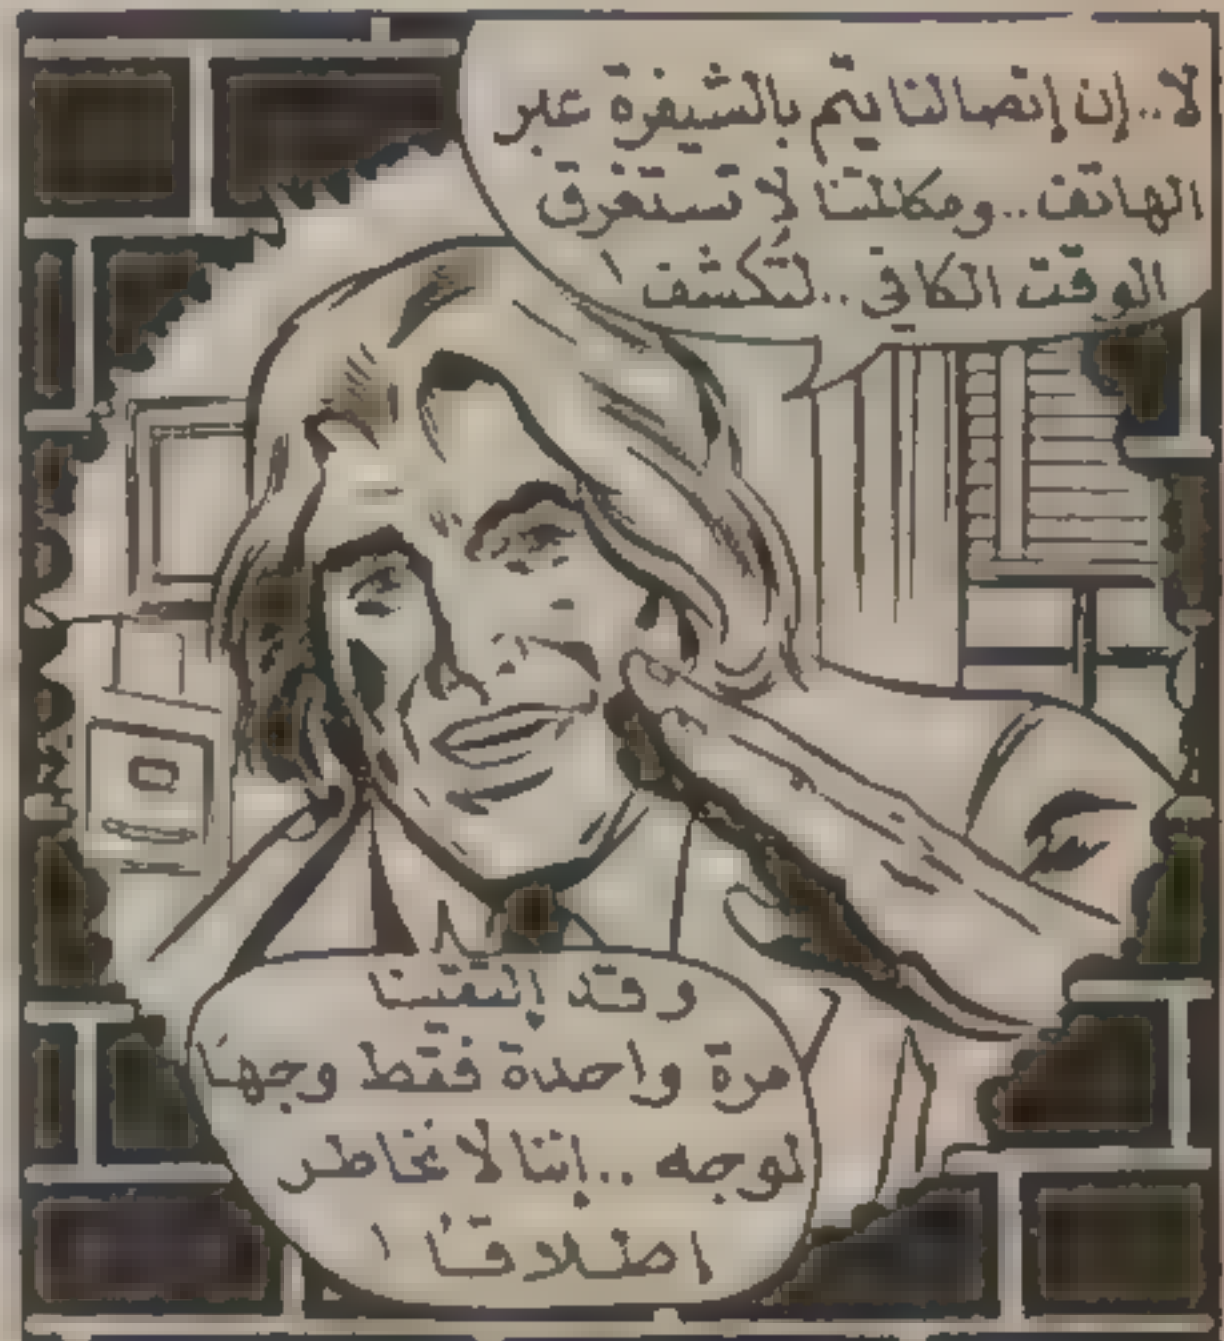 لا..إن إتصالنا يتم بالشيفرة عبر
الهاتف..ومكالمتنا لا تستغرق
الوقت الكافي..لتكشف !
وقد إلتقينا
مرة واحدة فقط وجهاً
لوجه ..إننا لا نخاطر
اطلاقاً !